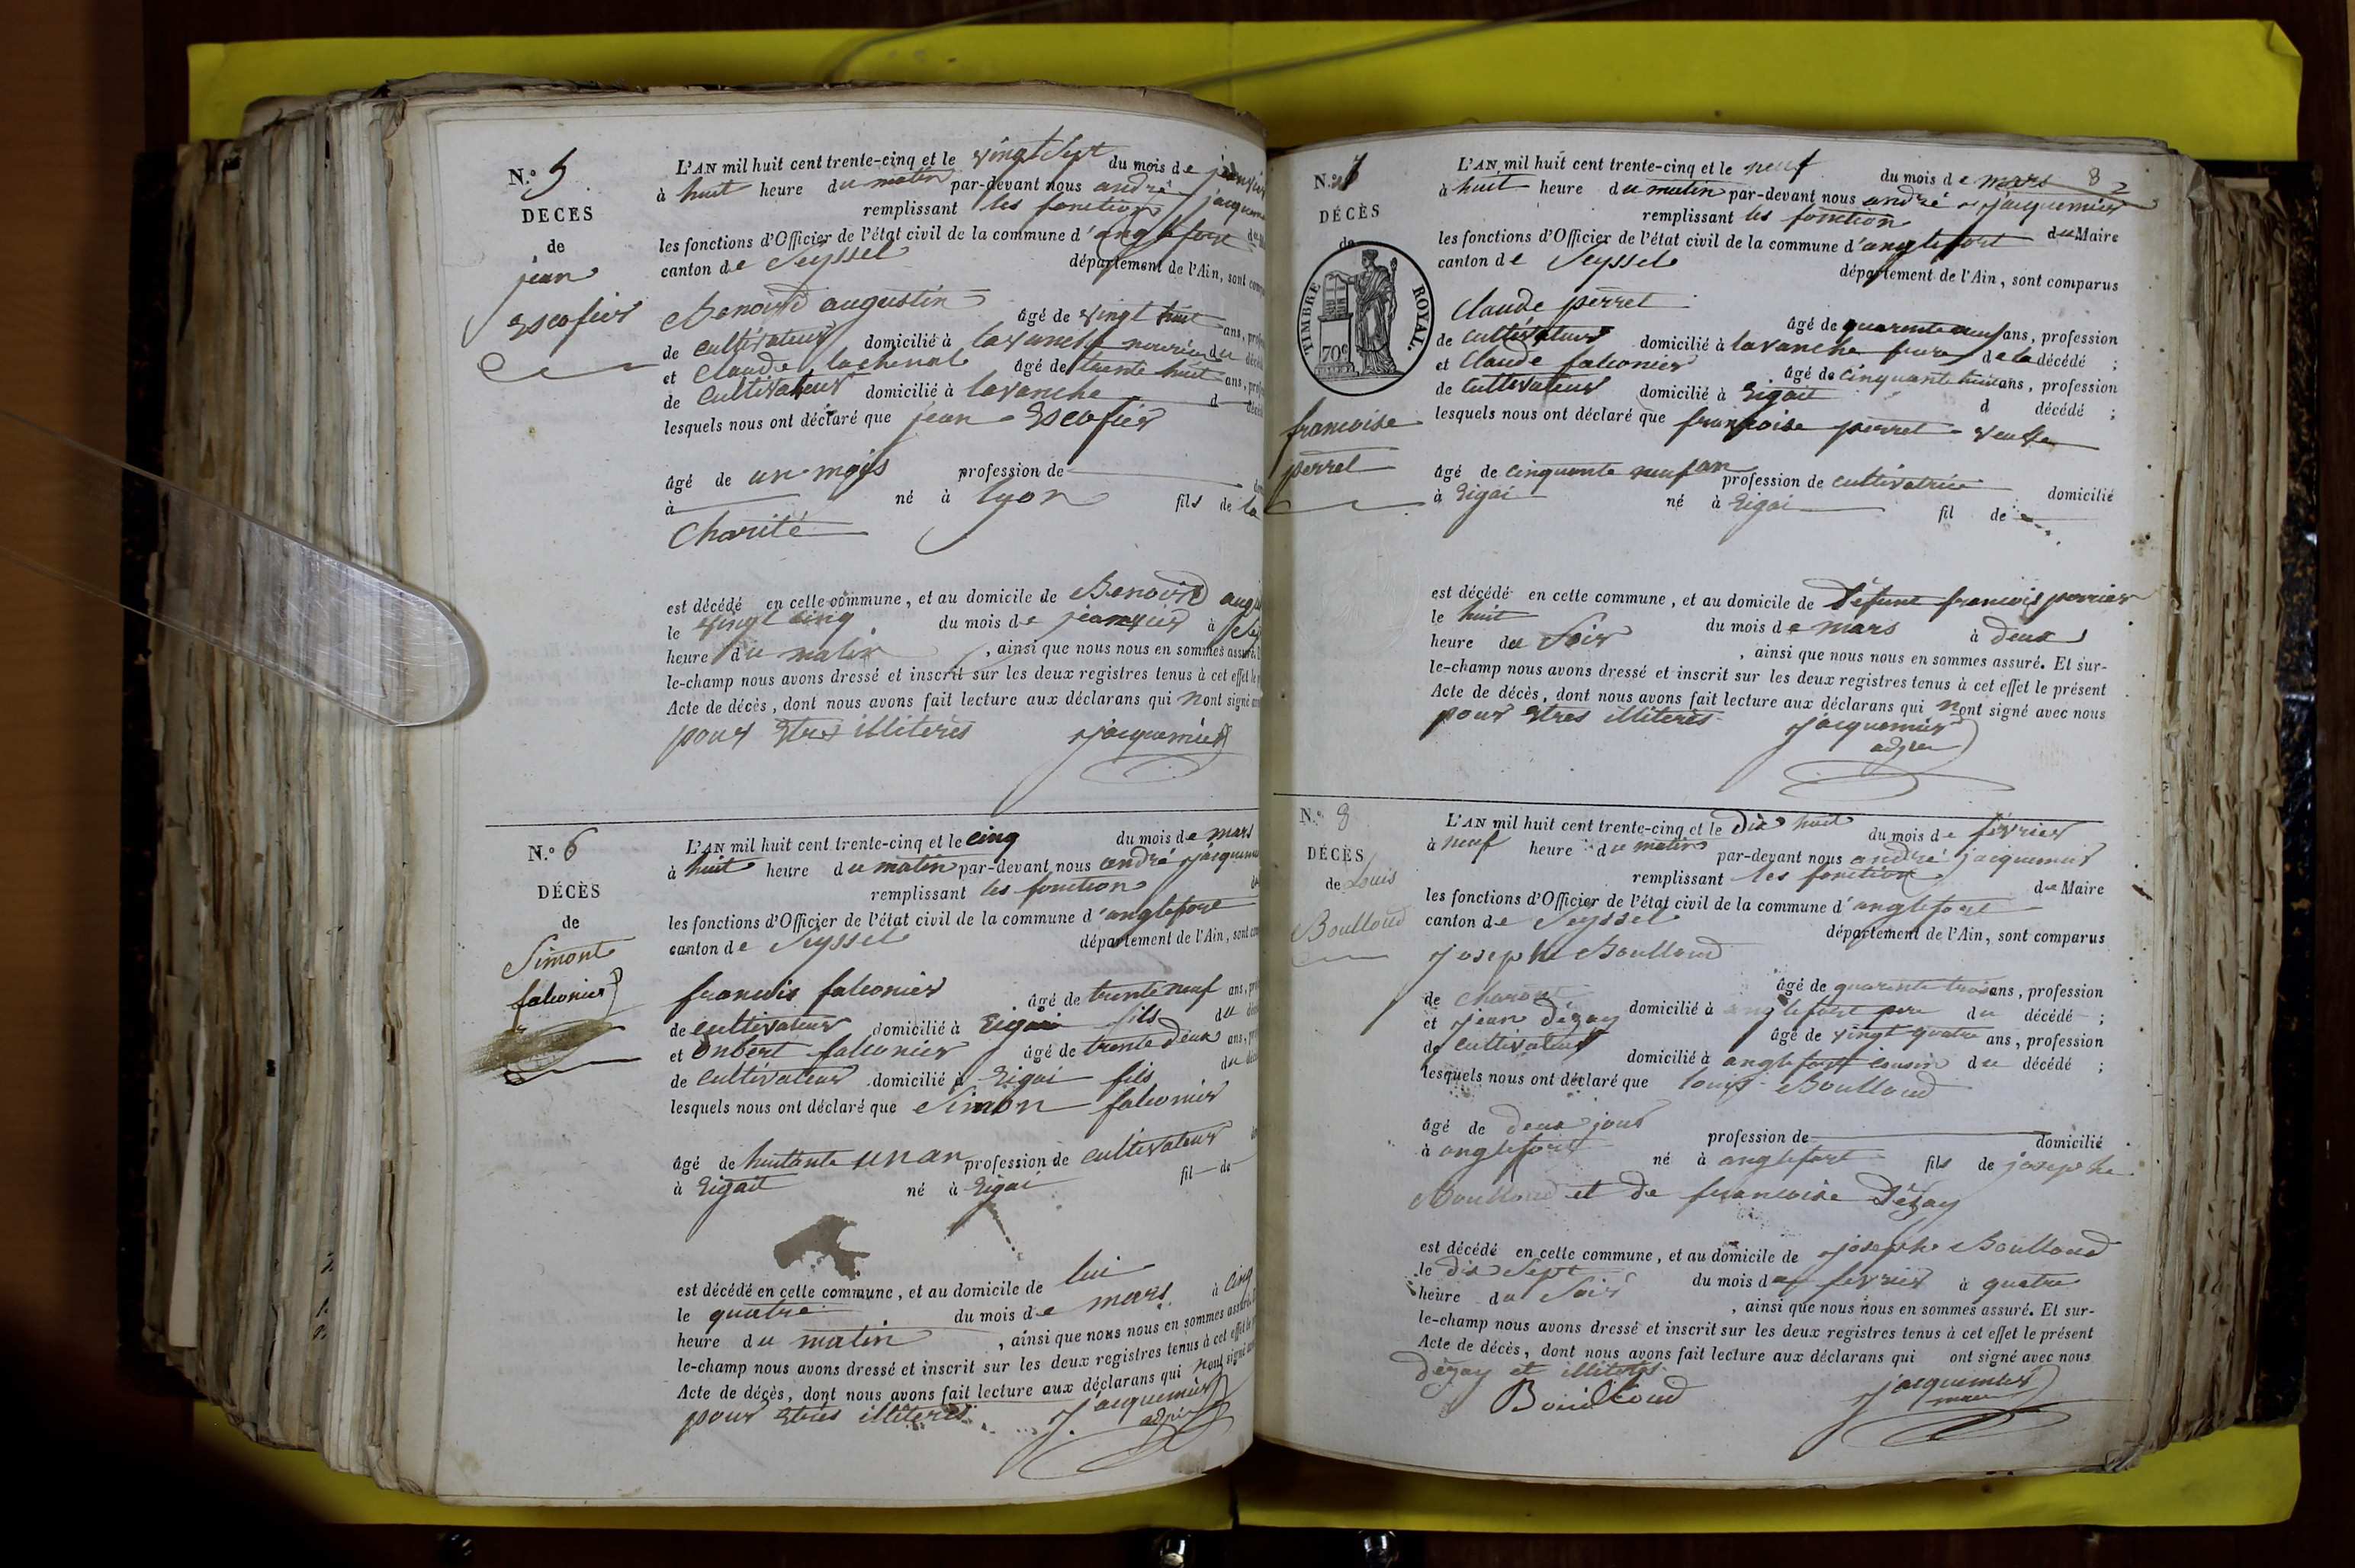 N.° 5
DÉCÈS
de
jean
Escofier
L'AN mil huit cent trente-cinq et le vingt Sept du mois de janvier
à huit heure du matin par-devant nous andré jacquem
remplissant les fonction du
les fonctions d'Officier de l'état civil de la commune d'anglefort
canton de Seyssel département de l'Ain, sont comp
Benoit augustin âgé de vingt huit ans, prof
de cultivateur domicilié à lavanche nouricier du décé
et Claude lachenal âgé de trente huit ans, prof
de Cultivateur domicilié à lavanche d décé
lesquels nous ont déclaré que jean Escofier
âgé de un mois profession de
à né à lyon fils de la
Charité
est décédé en cette commune, et au domicile de Benoit aug
le vingt cinq du mois de jeanvier à
heure du matin , ainsi que nous nous en sommes assuré.
le-champ nous avons dressé et inscrit sur les deux registres tenus à cet effet le
Acte de décès, dont nous avons fait lecture aux déclarans qui nont signé
pour Etres illiterés jacquemier
N.° 6
DÉCÈS
de
Simont
falconier
L'AN mil huit cent trente-cinq et le cinq du mois de mars
à huit heure du matin par-devant nous andré jacquem
remplissant les fonction
les fonctions d'Officier de l'état civil de la commune d'anglefort
canton de Seyssel département de l'Ain, sont
francois falconier âgé de trente neuf ans,
de cultivateur domicilié à Eigai fils du
et Onbert falconier âgé de trente deux ans,
de Cultivateur domicilié à Eigai fils du
lesquels nous ont déclaré que Simon falconier
âgé de huitante un an profession de cultivateur
à Eigait né à Eigai fil de
est décédé en cette commune, et au domicile de lui
le quatre du mois de mars à cinq
heure du matin , ainsi que nous nous en sommes assuré.
le-champ nous avons dressé et inscrit sur les deux registres tenus à cet effet le
Acte de décès, dont nous avons fait lecture aux déclarans qui nont signé
pour Etres illiterés jacquemier
N.° 7
DÉCÈS
de
TIMBRE ROYAL.
70c
francoise
perret
8
L'AN mil huit cent trente-cinq et le neuf du mois de mars
à huit heure du matin par-devant nous andré jacquemier
remplissant les fonction du Maire
les fonctions d'Officier de l'état civil de la commune d'anglefort
canton de Seyssel département de l'Ain, sont comparus
Claude perret âgé de quarente neuf ans, profession
de cultivateur domicilié à lavanche frere de la décédé ;
et Claude falconier âgé de cinquante huit ans, profession
de Cultivateur domicilié à Eigait d décédé ;
lesquels nous ont déclaré que françoise perret veuve
âgé de cinquante neuf an profession de cultivatrice domicilié
à Eigai né à Eigai fil de
est décédé en cette commune, et au domicile de Défunt francois perrier
le huit du mois de mars à deux
heure du Soir , ainsi que nous nous en sommes assuré. Et sur-
le-champ nous avons dressé et inscrit sur les deux registres tenus à cet effet le présent
Acte de décès, dont nous avons fait lecture aux déclarans qui nont signé avec nous
pour Etres illiterés jacquemier
N.° 8
DÉCÈS
de Louis
Boulloud
L'AN mil huit cent trente-cinq et le dix huit du mois de fevrier
à neuf heure du matin par-devant nous andré jacquemier
remplissant les fonction du Maire
les fonctions d'Officier de l'état civil de la commune d'anglefort
canton de Seyssel département de l'Ain, sont comparus
josephe Boulloud âgé de quarente trois ans, profession
de charon domicilié à anglefort pere du décédé ;
et jean dézay âgé de vingt quatre ans, profession
de Cultivateur domicilié à anglefort cousin du décédé ;
lesquels nous ont déclaré que louis Boulloud
âgé de deux jour profession de domicilié
à anglefort né à anglefort fils de josephe
Boulloud et de francoise Dézay
est décédé en cette commune, et au domicile de josephe Boulloud
le dix Sept du mois de fevrier à quatre
heure du Soir , ainsi que nous nous en sommes assuré. Et sur-
le-champ nous avons dressé et inscrit sur les deux registres tenus à cet effet le présent
Acte de décès, dont nous avons fait lecture aux déclarans qui ont signé avec nous
dézay et illiterés jacquemier
Bouilloud